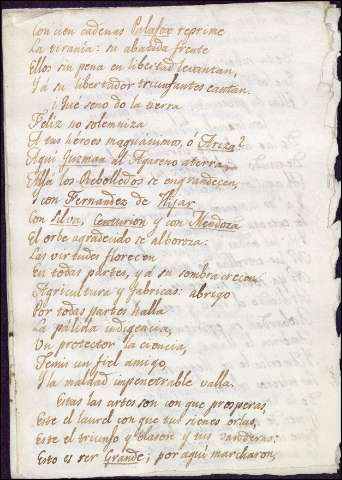 Con cien cadenas Palafox reprime
La tirania: su abatida frente
Ellos sin pena en libertad levantan,
Y á su libertador triunfantes cantan.
¿Que seno de la tierra
Feliz no solemniza
A tus héroes magnanimos, ó Ariza?
Aqui Guzman al Agareno aterra;
Allá los Rebolledos se engrandecen,
Y con Fernandez de Hijar
Con Silva, Centurion y con Mendoza
El orbe agradecido se alboroza.
Las virtudes florecen
En todas partes, y á su sombra crecen
Agricultura y fabricas: abrigo
Por todas partes halla
La pálida indigencia,
Un protector la ciencia,
Temis un fiel amigo,
Y la maldad impenetrable valla.
Estas las artes son con que prosperas,
Este el laurel con que tus sienes orlas,
Este el triunfo y blason y tus vanderas:
Esto es ser Grande; por aqui marcharon,